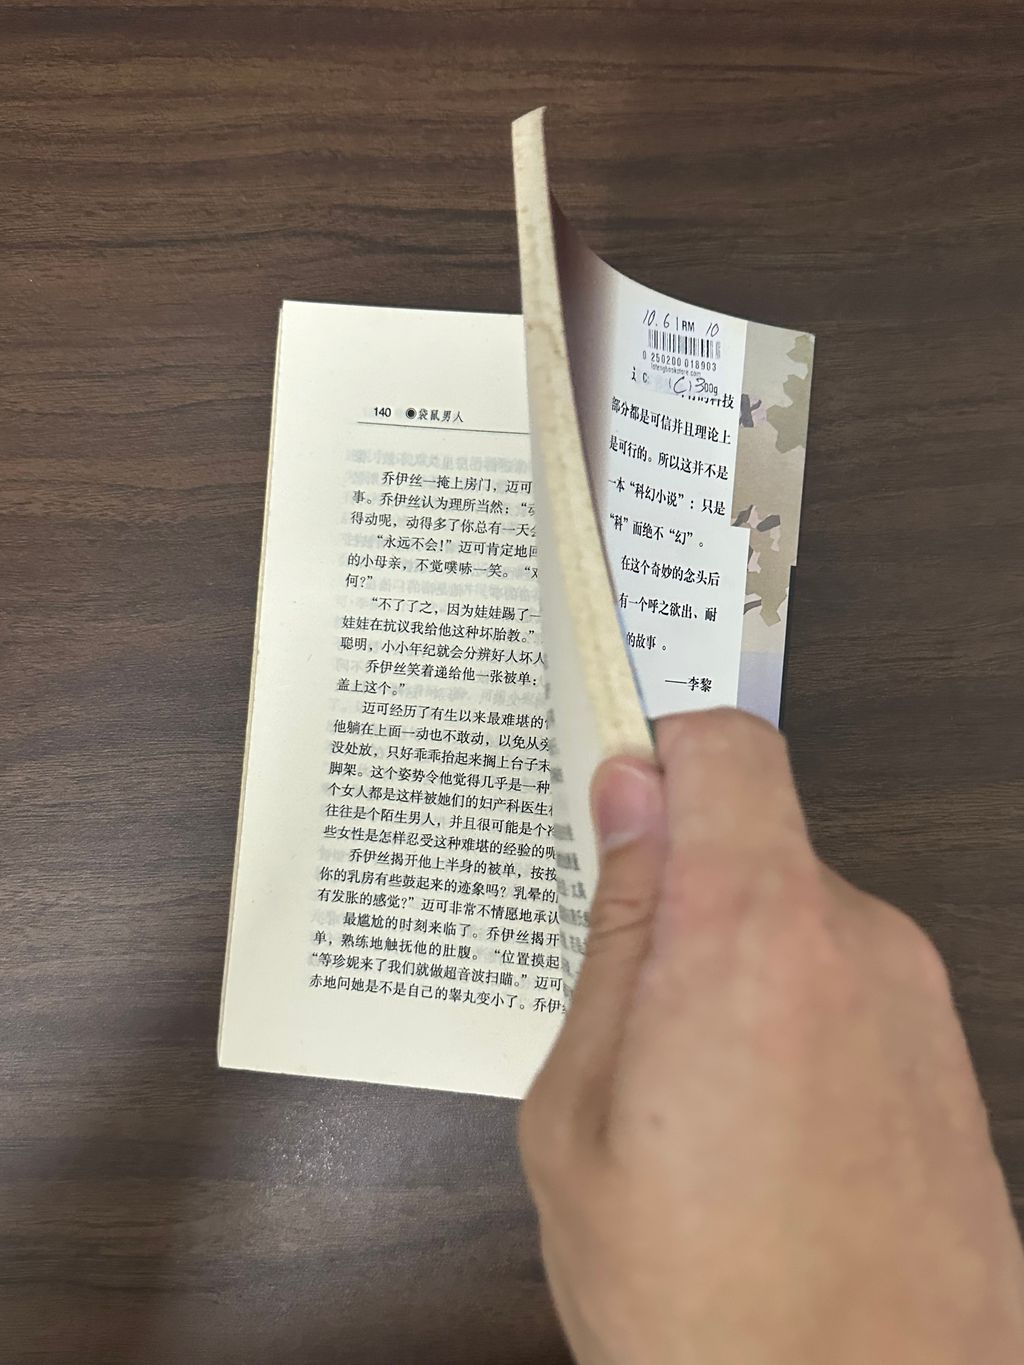 140 ◉袋鼠男人
乔伊丝一掩上房门，迈可
事。乔伊丝认为理所当然：“
得动呢，动得多了你总有一天
“永远不会！”迈可肯定地
的小母亲，不觉噗哧一笑。“
何？”
“不了了之，因为娃娃踢了一
娃娃在抗议我给他这种坏胎教。”
聪明，小小年纪就会分辨好人坏人
乔伊丝笑着递给他一张被单：
盖上这个。”
迈可经历了有生以来最难堪的
他躺在上面一动也不敢动，以免从
没处放，只好乖乖抬起来搁上台子末
脚架。这个姿势令他觉得几乎是一种
个女人都是这样被她们的妇产科医生
往往是个陌生男人，并且很可能是个
些女性是怎样忍受这种难堪的经验的
乔伊丝揭开他上半身的被单，按按
你的乳房有些鼓起来的迹象吗？乳晕的
有发胀的感觉？”迈可非常不情愿地承认
最尴尬的时刻来临了。乔伊丝揭开
单，熟练地触抚他的肚腹。“位置摸起
“等珍妮来了我们就做超音波扫瞄。”迈可
赤地问她是不是自己的睾丸变小了。乔伊
10.6 RM 10
0 250200 018903
(C) 300g
科技
部分都是可信并且理论上
是可行的。所以这并不是
一本“科幻小说”：只是
“科”而绝不“幻”。
在这个奇妙的念头后
有一个呼之欲出、耐
的故事。
——李黎